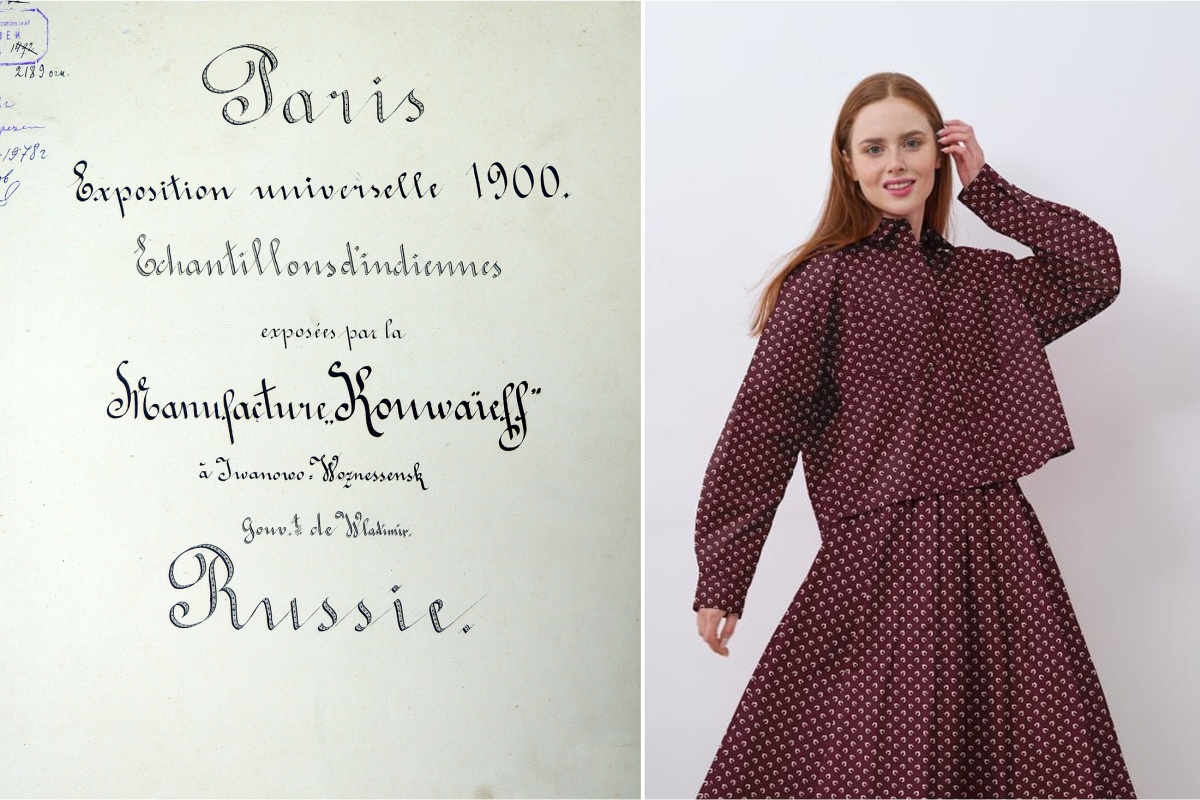 ЗЕЙ
1472
2189 огл.
1978 г
Paris
Exposition universelle 1900.
Echantillons d'indiennes
exposées par la
Manufacture „Kouwaïeff"
à Iwanowo-Woznessensk
Gouv.t de Wladimir.
Russie.